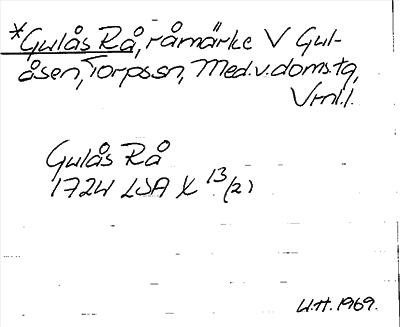 *Gulås Rå, råmärke V Gul-
åsen, Torpssn, Med.v.doms.tg,
Vrml.l.
Gulås Rå
1724 LSA X 13/(2)
U.H. 1969.